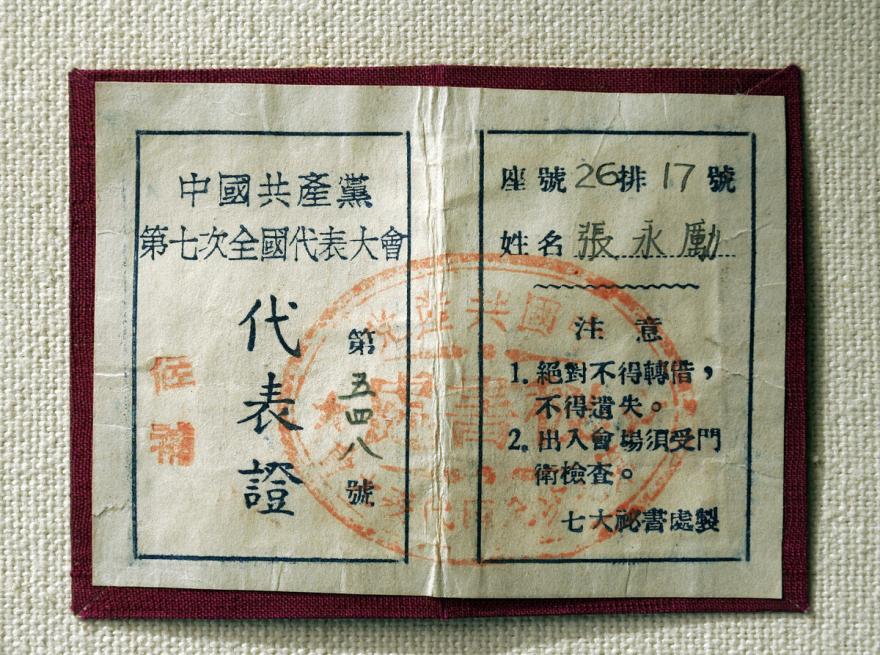 中國共產黨
第七次全國代表大會
代表證
第五四八號
座號26排17號
姓名 張永勵
注意
1. 絕對不得轉借，
不得遺失。
2. 出入會場須受門
衛檢查。
七大祕書處製